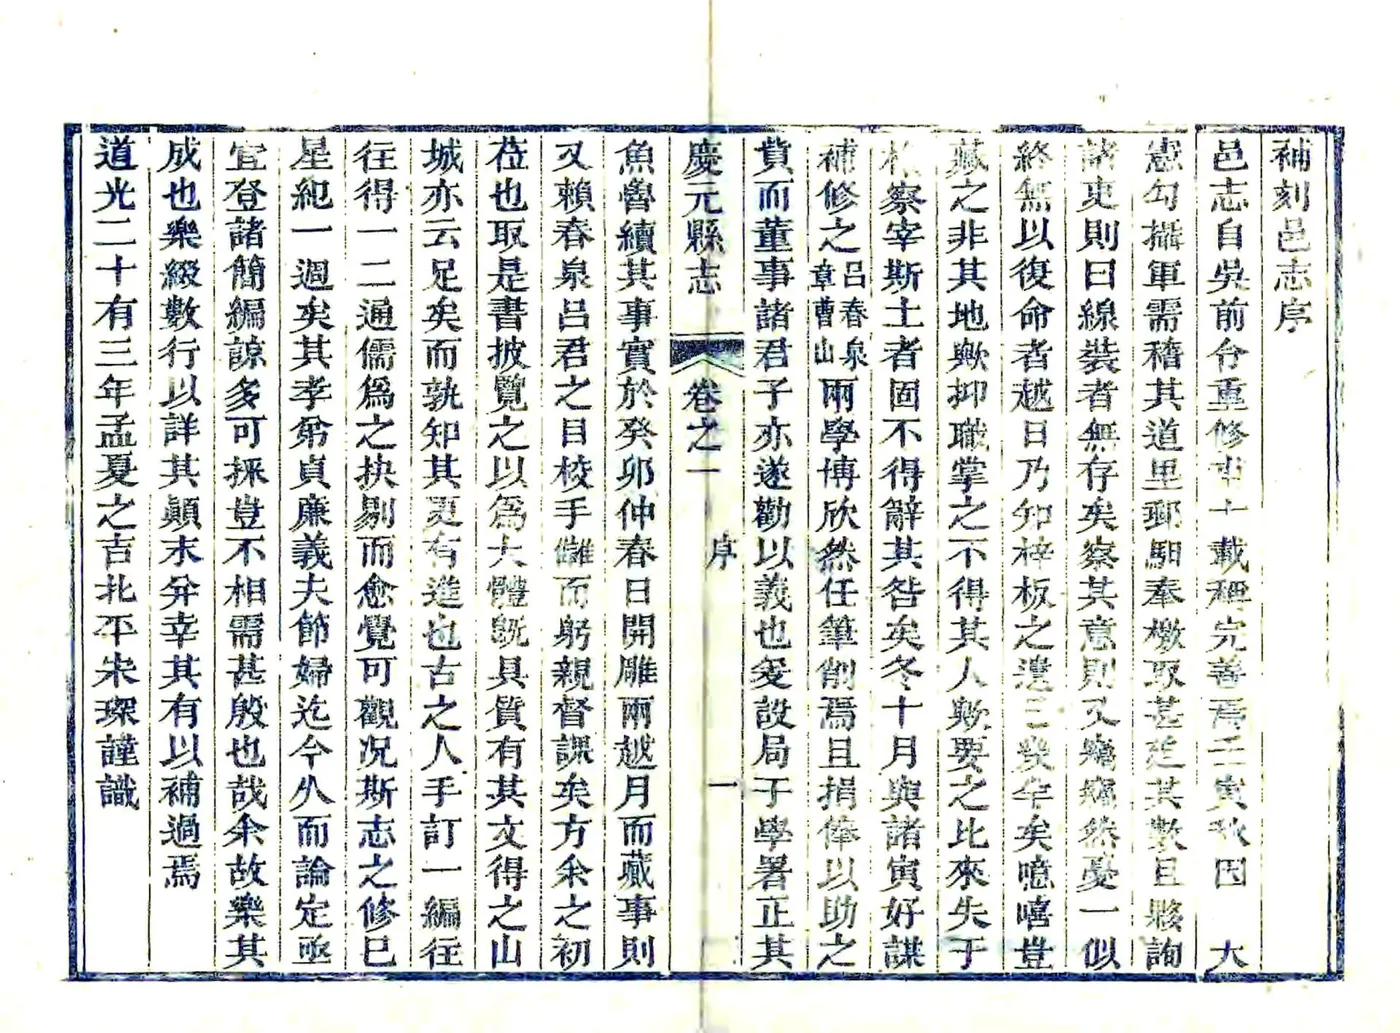 補刻邑志序
邑志自吳前令重修事十載稱完善焉壬寅秋因 大
憲勾攝軍需稽其道里郵馹奉檄取甚迫其數且夥詢
諸吏則曰線裝者無存矣察其意則又竊竊然憂一似
終無以復命者越日乃知梓板之遺已幾年矣噫嘻豈
藏之非其地歟抑職掌之不得其人歟要之比來失于
檢察宰斯土者固不得辭其咎矣冬十月與諸寅好謀
補修之呂春泉章曹山兩學博欣然任筆削焉且捐俸以助之
貲而董事諸君子亦遂勸以義也爰設局于學署正其
慶元縣志 卷之一 序 一
魚魯續其事實於癸卯仲春日開雕兩越月而藏事則
又賴春泉呂君之目校手讎而躬親督課矣方余之初
莅也取是書披覽之以爲大體旣具質有其文得之山
城亦云足矣而孰知其更有進也古之人手訂一編往
往得一二通儒爲之抉剔而愈覺可觀况斯志之修已
星紀一週矣其孝弟貞廉義夫節婦迄今久而論定亟
宜登諸簡編諒多可採豈不相需甚殷也哉余故樂其
成也樂綴數行以詳其顛末并幸其有以補過焉
道光二十有三年孟夏之吉北平宋琛謹識